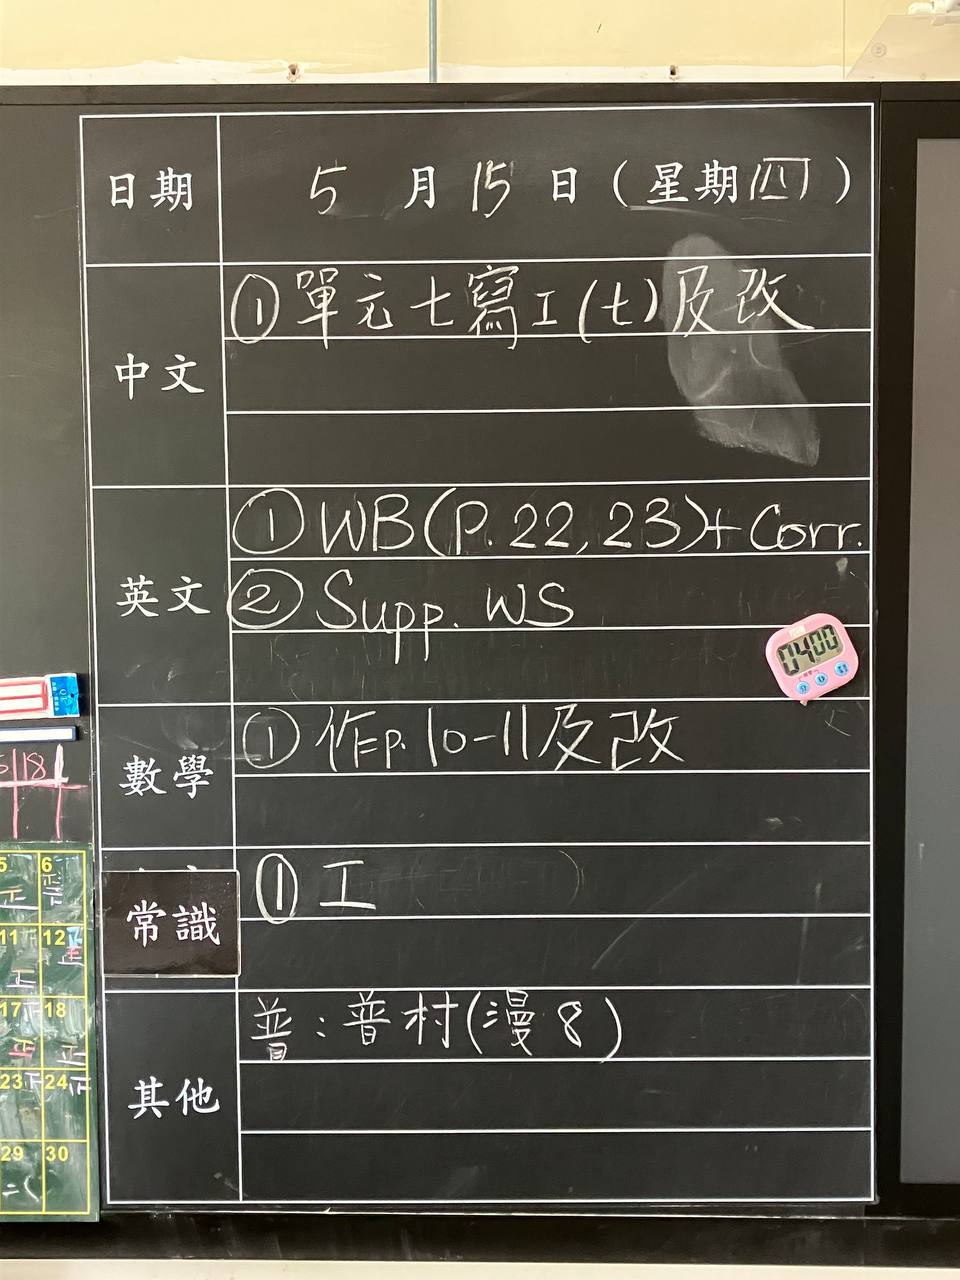 日期 5 月 15 日 ( 星期四 )
中文
① 單元七寫工(七)及改
英文
① WB(P. 22, 23)+ Corr.
② Supp. WS
04 00
數學
① 作p. 10-11及改
常識
① 工
其他
普 : 普村(漫8)
5 18
5 6
11 12
17 18
23 24
29 30